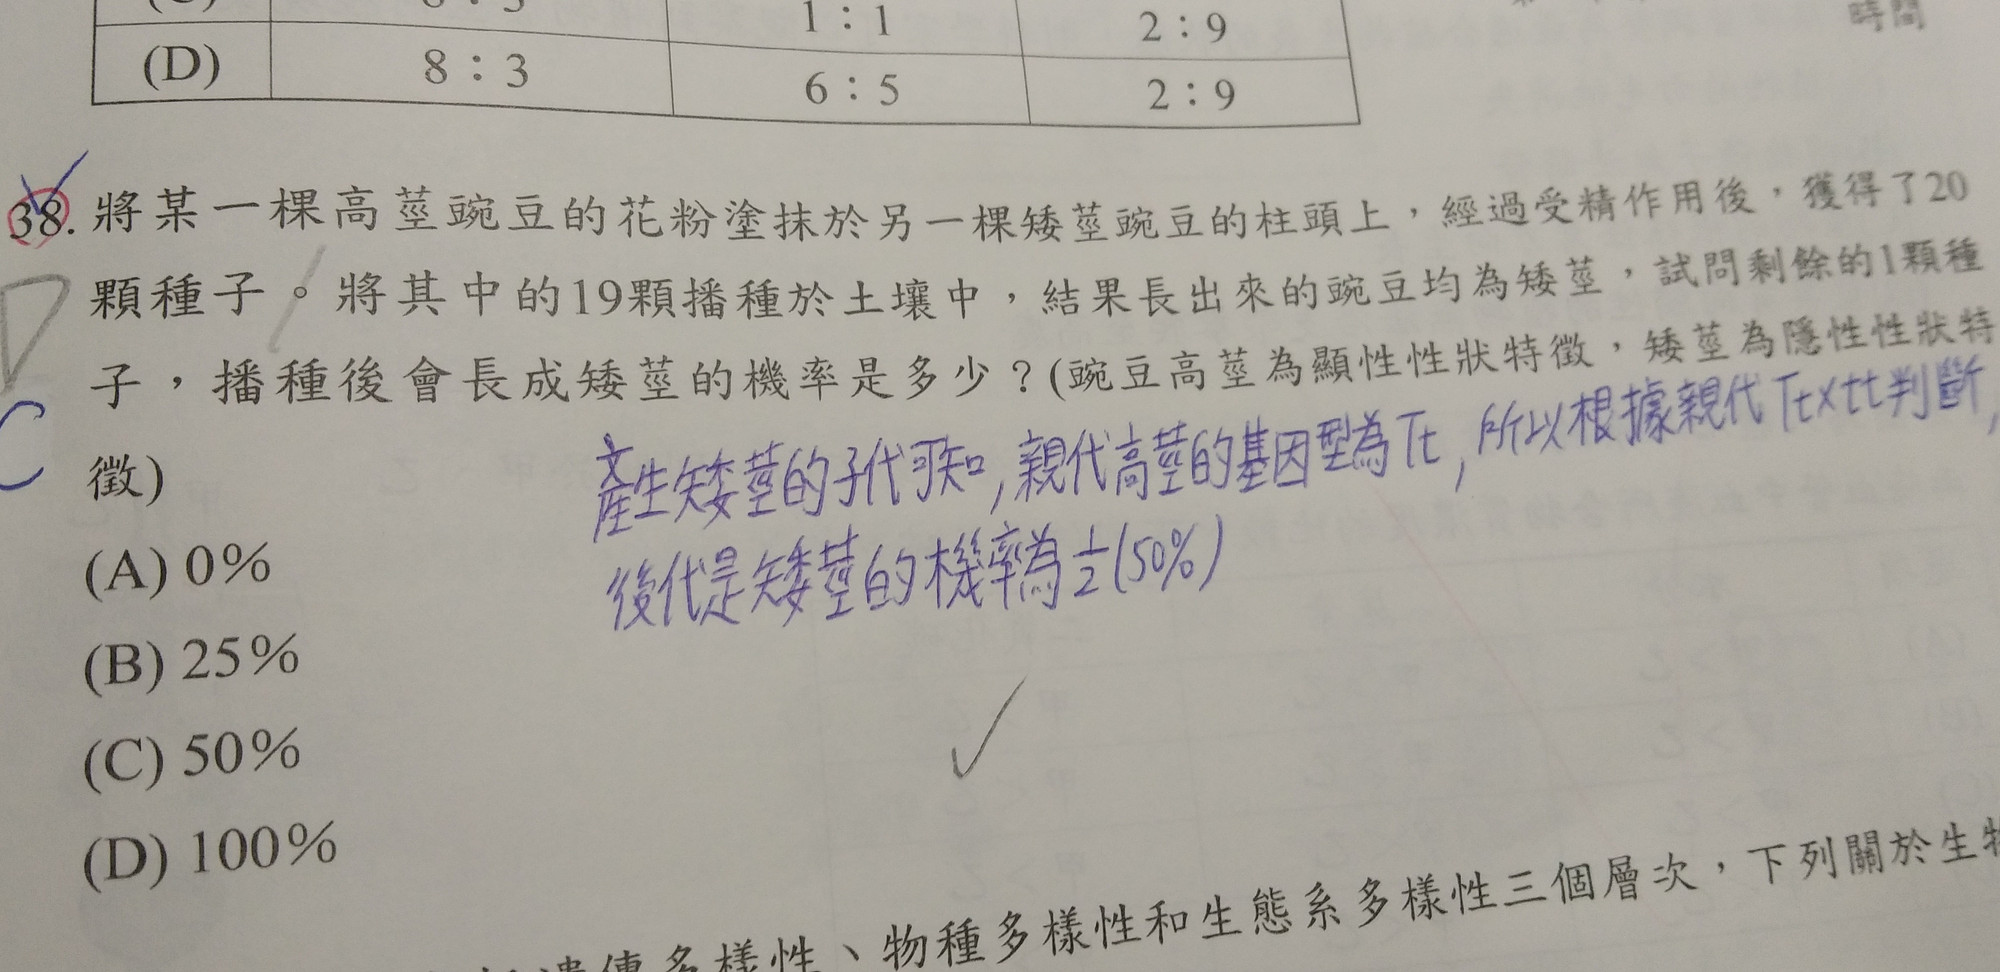 1：1
2：9
時間
(D) 8：3 6：5 2：9
38. 將某一棵高莖豌豆的花粉塗抹於另一棵矮莖豌豆的柱頭上，經過受精作用後，獲得了20
顆種子。將其中的19顆播種於土壤中，結果長出來的豌豆均為矮莖，試問剩餘的1顆種
D
子，播種後會長成矮莖的機率是多少？(豌豆高莖為顯性性狀特徵，矮莖為隱性性狀特
C
徵)
產生矮莖的子代可知,親代高莖的基因型為Tt,所以根據親代Tt×tt判斷,
後代是矮莖的機率為½(50%)
(A) 0%
(B) 25%
(C) 50%
(D) 100%
遺傳多樣性、物種多樣性和生態系多樣性三個層次，下列關於生物